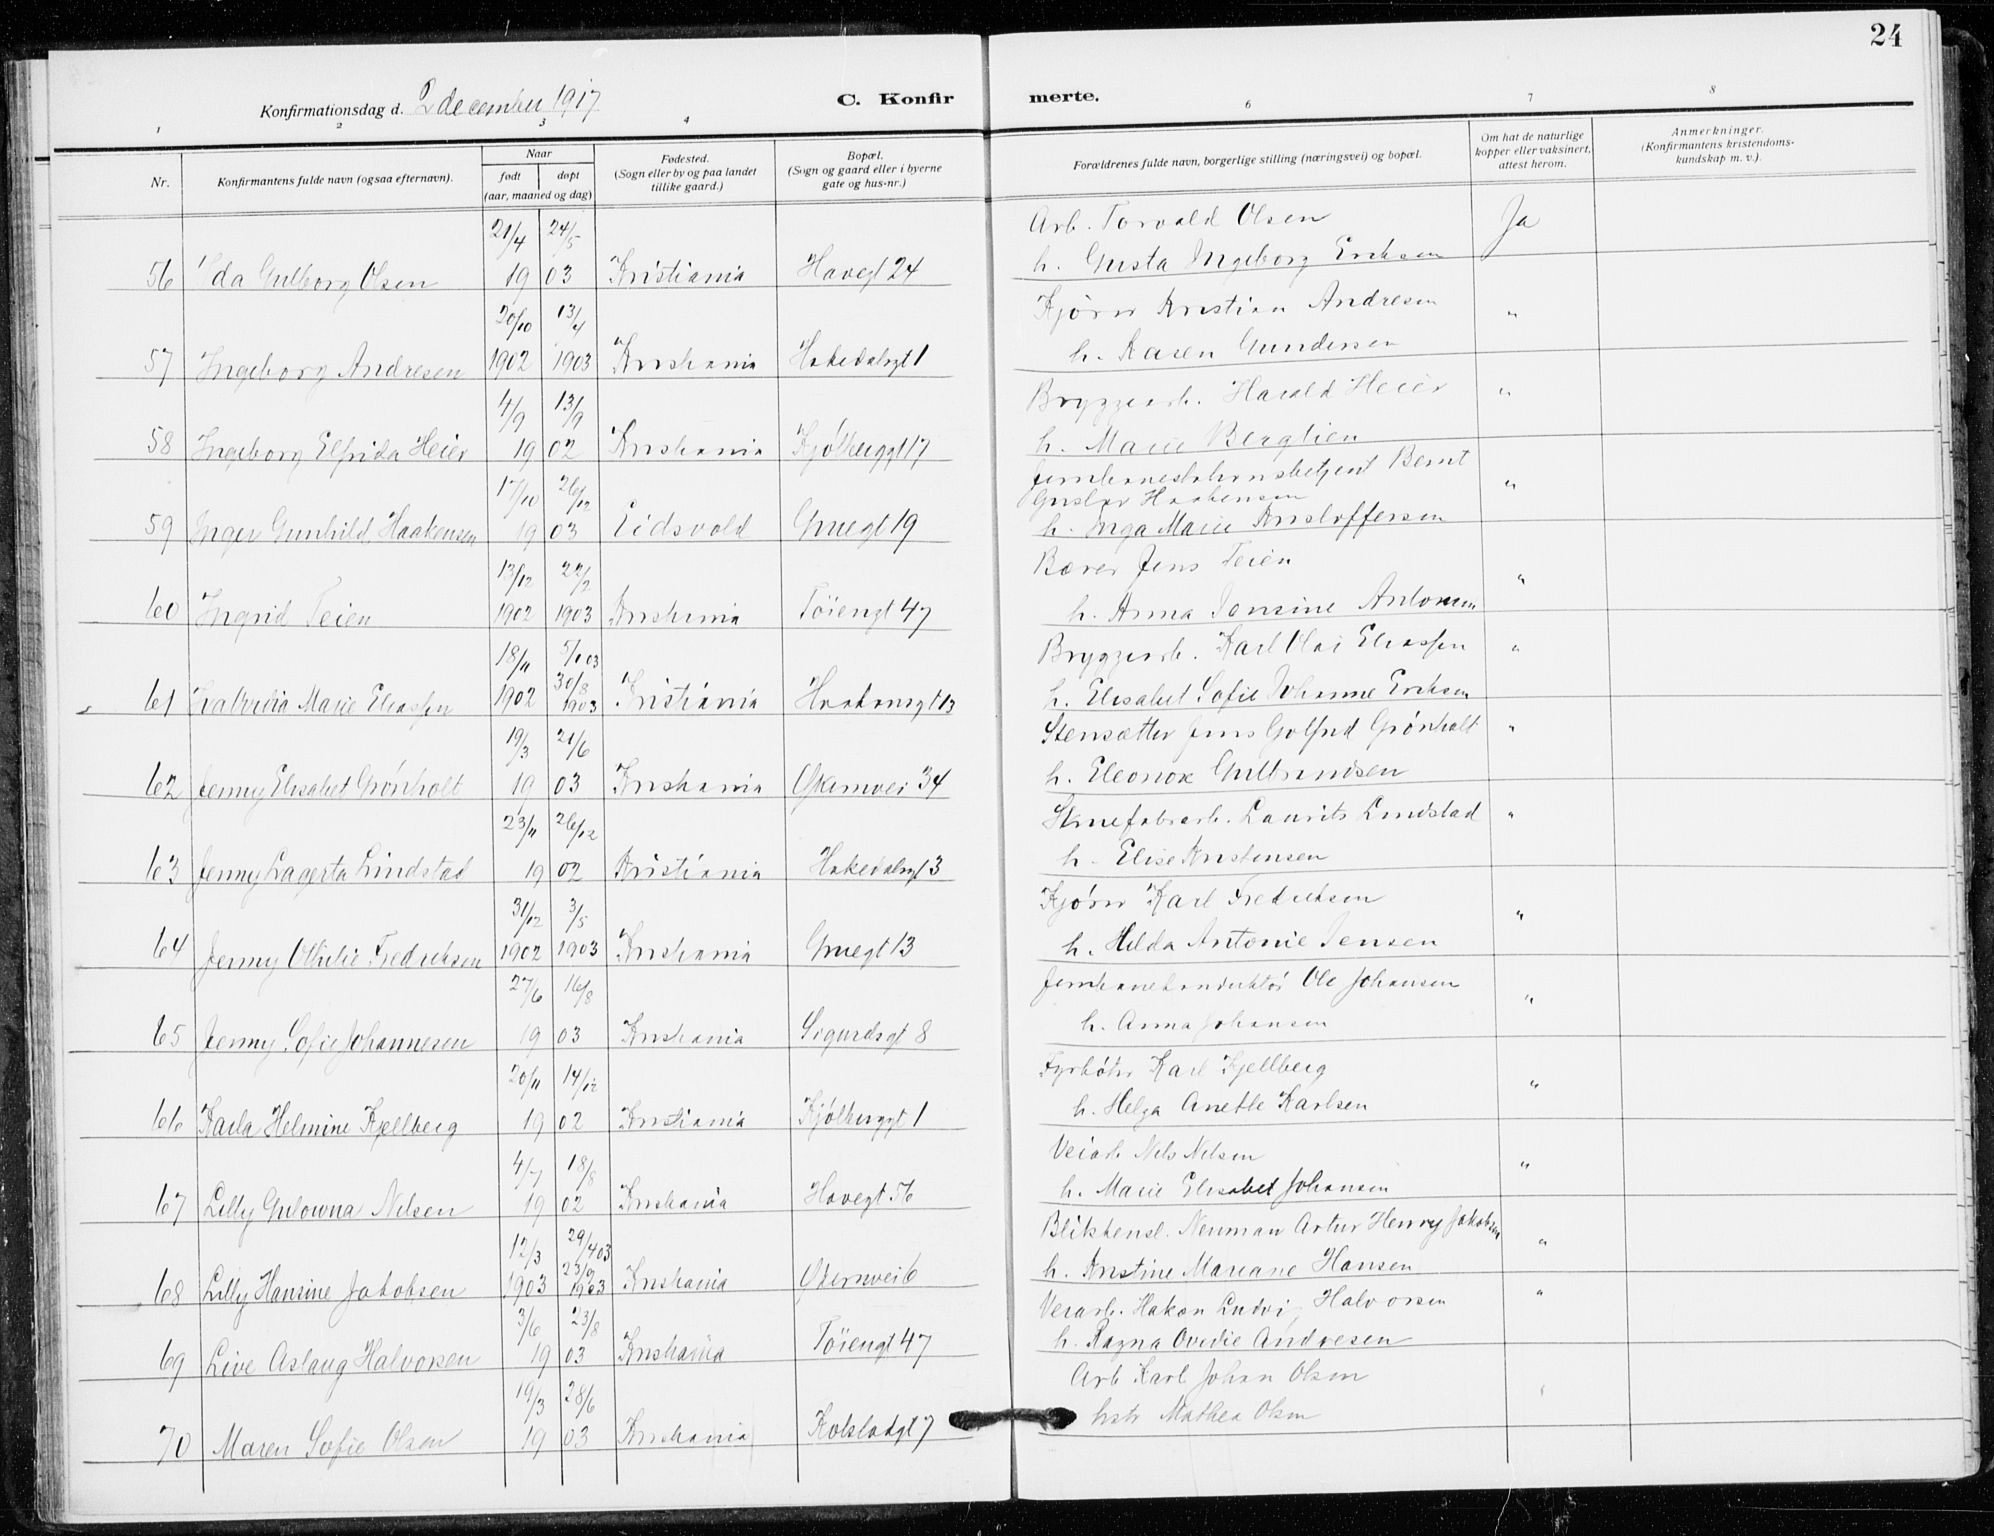 24
Konfirmationsdag d. 2 december 1917
C. Konfir
merte.
1 2 3 4 6 7 8
Nr.
Konfirmantens fulde navn (ogsaa efternavn).
Naar
født
døpt
(aar, maaned og dag)
Fødested.
(Sogn eller by og paa landet
tillike gaard.)
Bopæl.
(Sogn og gaard eller i byerne
gate og hus-nr.)
Forældrenes fulde navn, borgerlige stilling (næringsvei) og bopæl.
Om hat de naturlige
kopper eller vaksinert,
attest herom.
Anmerkninger.
(Konfirmantens kristendoms-
kundskap m. v.).
21/4 24/5 Arb. Torvald Olsen Ja
56 Ida Gulborg Olsen 19 03 Kristiania Havegt 24 h. Gusta Ingeborg Eriksen
20/10 13/4 Kjører Kristian Andresen "
57 Ingeborg Andresen 1902 1903 Kristiania Hakedalsgt 1 h. Karen Gundersen
4/9 13/9 Bryggeriarb. Harald Heier "
58 Ingeborg Elfrida Heier 19 02 Kristiania Kjølberggt 17 h. Marie Berglien
17/10 26/12 Jernbanestationsbetjent Bernt
Gustav Haakensen "
59 Inger Gunhild Haakensen 19 03 Eidsvold Gruegt 19 h. Inga Marie Kristoffersen
13/12 22/2 Bærer Jens Teien "
60 Ingrid Teien 1902 1903 Kristiania Tøiengt 47 h. Anna Jonsine Antonsen
18/11 5/1 03 Bryggeriarb. Karl Olai Eliassen "
30/8
61 Marie Eliassen 1902 1903 Kristiania Haakonsgt 13 h. Elisabet Sofie Johanne Eriksen
19/3 21/6 Stensætter Jens Golfred Grønholt "
62 Jenny Elisabet Grønholt 19 03 Kristiania Økernvei 34 h. Eleonora Gulbrandsen
23/11 26/12 Laurits Lundstad "
63 Jenny Lagerta Lindstad 19 02 Kristiania Hakedalsgt 3 h. Elise Kristensen
31/12 3/5 Kjører Karl Fredriksen "
64 Jenny Otilie Fredriksen 1902 1903 Kristiania Gruegt 13 h. Hilda Antonie Jensen
27/6 16/8 Jernbanekonduktør Ole Johansen "
65 Jenny Sofie Johannesen 19 03 Kristiania Sigurdsgt 8 h. Anna Johansen
20/11 14/12 Fyrbøter Karl Kjellberg "
66 Karla Helmine Kjellberg 19 02 Kristiania Kjølberggt 1 h. Helga Anette Karlsen
4/7 18/8 Veiarb. Nils Nilsen "
67 Lilly Gulowna Nilsen 19 02 Kristiania Havegt 56 h. Marie Elisabet Johansen
12/3 29/4 03 Blikkensl. Neuman Artur Henry Jakobsen "
23/9
68 Lilly Hansine Jakobsen 1903 1903 Kristiania Økernvei 6 h. Kristine Mariane Hansen
3/6 23/8 Veiarb. Hakon Ludvi Halvorsen "
69 Live Aslaug Halvorsen 19 03 Kristiania Tøiengt 47 h. Ragna Ovidie Andresen
19/3 28/6 Arb Karl Johan Olsen "
70 Maren Sofie Olsen 19 03 Kristiania Kolstadgt 7 hstr Mathea Olsen